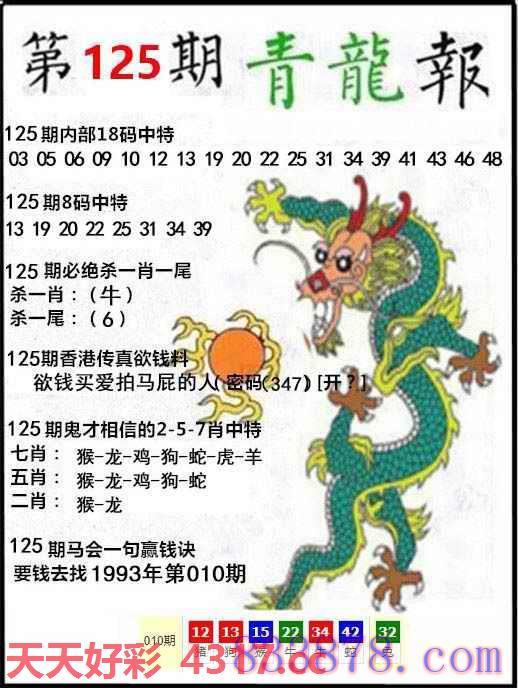 第125期青龍報
125期内部18码中特
03 05 06 09 10 12 13 19 20 22 25 31 34 39 41 43 46 48
125期8码中特
13 19 20 22 25 31 34 39
125期必绝杀一肖一尾
杀一肖：（牛）
杀一尾：（6）
125期香港传真欲钱料
欲钱买爱拍马屁的人（密码(347)［开？］
125期鬼才相信的2-5-7肖中特
七肖： 猴-龙-鸡-狗-蛇-虎-羊
五肖： 猴-龙-鸡-狗-蛇
二肖： 猴-龙
125期马会一句赢钱诀
要钱去找1993年第010期
010期 12 13 15 22 34 42 32
猪 狗 猴 牛 蛇 兔
天天好彩 4387.cc